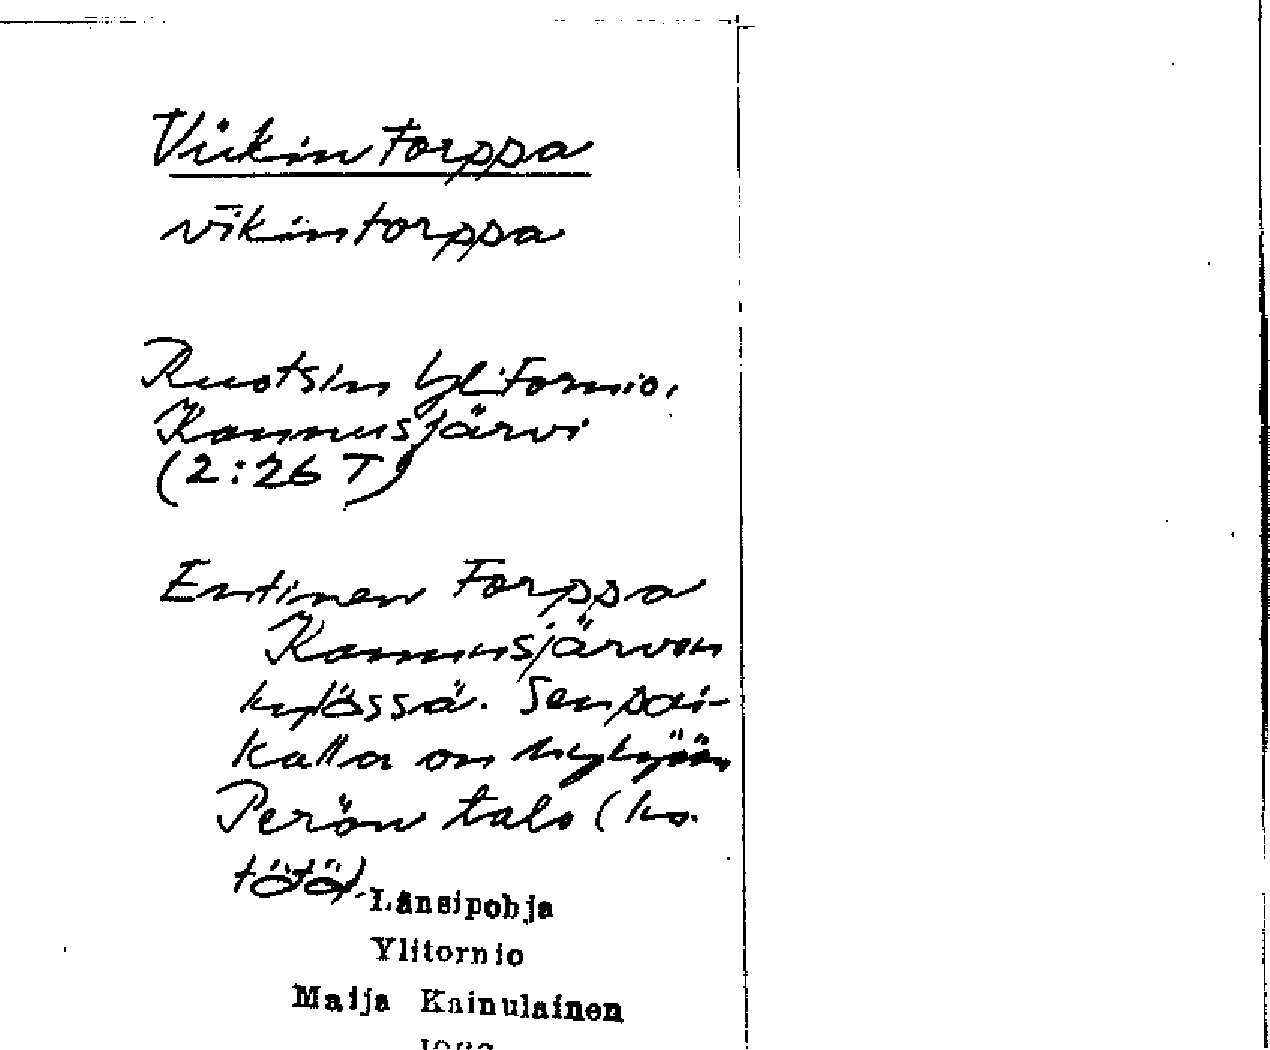 Viikin torppa
vīkin torppa
Ruotsin Ylitornio,
Kannusjärvi
(2:26 T)
Entinen torppa
Kannusjärven
kylässä. Sen pai-
kalla on nykyään
Perän talo (ks.
tätä).
Länsipohja
Ylitornio
Maija Kainulainen